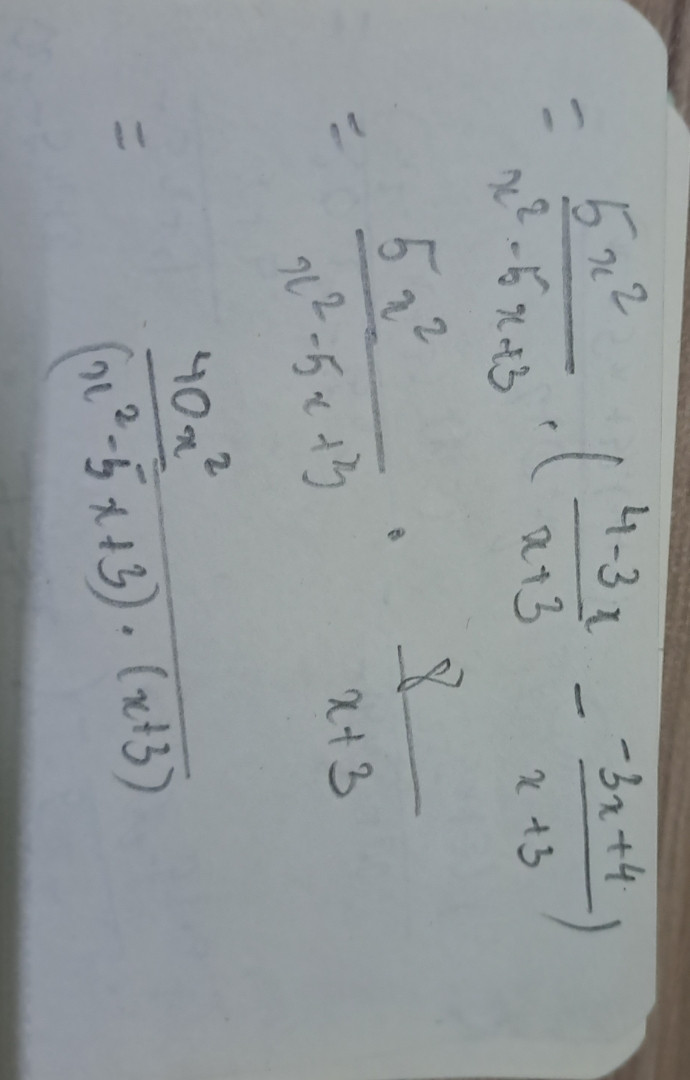 = 5x²/(x²-5x+3) · ((4-3x)/(x+3) - (-3x+4)/(x+3))
= 5x²/(x²-5x+3) · 8/(x+3)
= 40x²/((x²-5x+3)·(x+3))